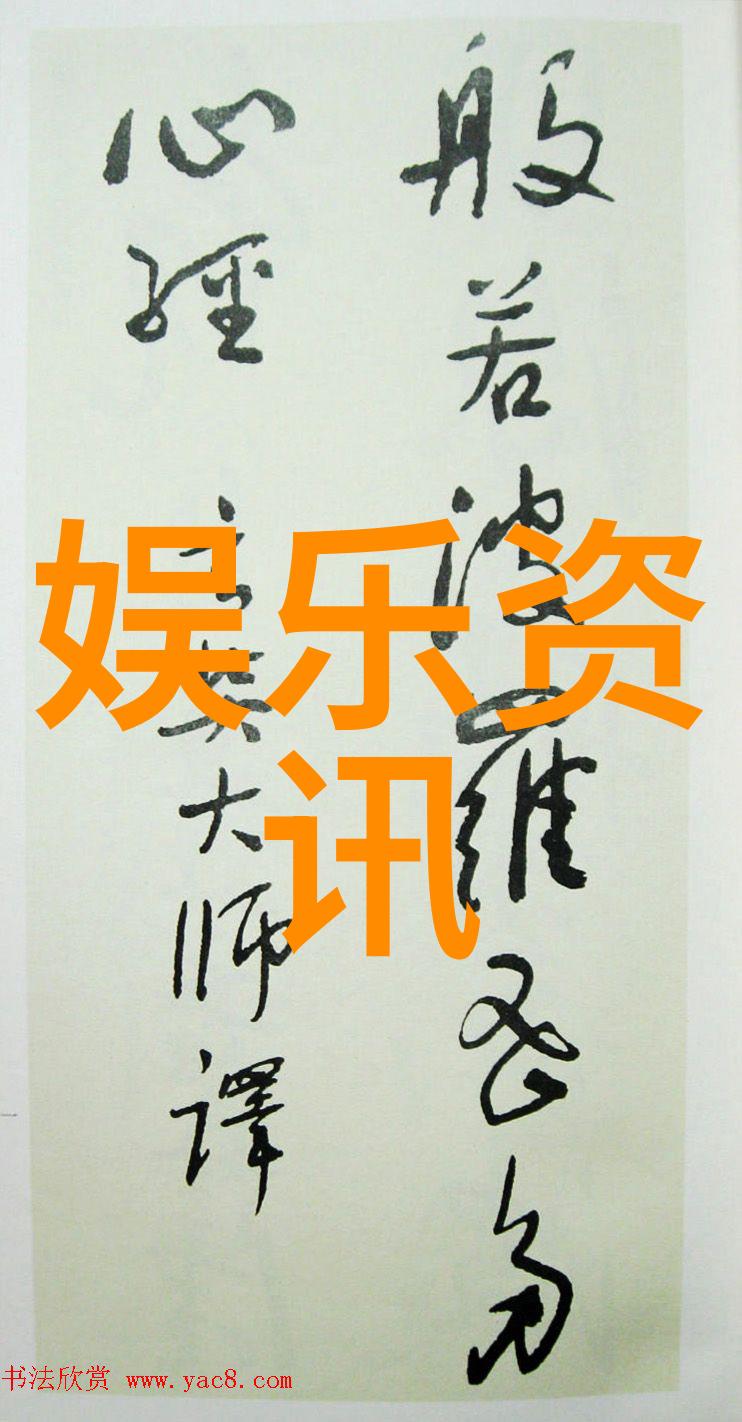 般若波羅蜜多
心經 玄奘大师譯
娱乐资
讯
书法欣赏 www.yac8.com